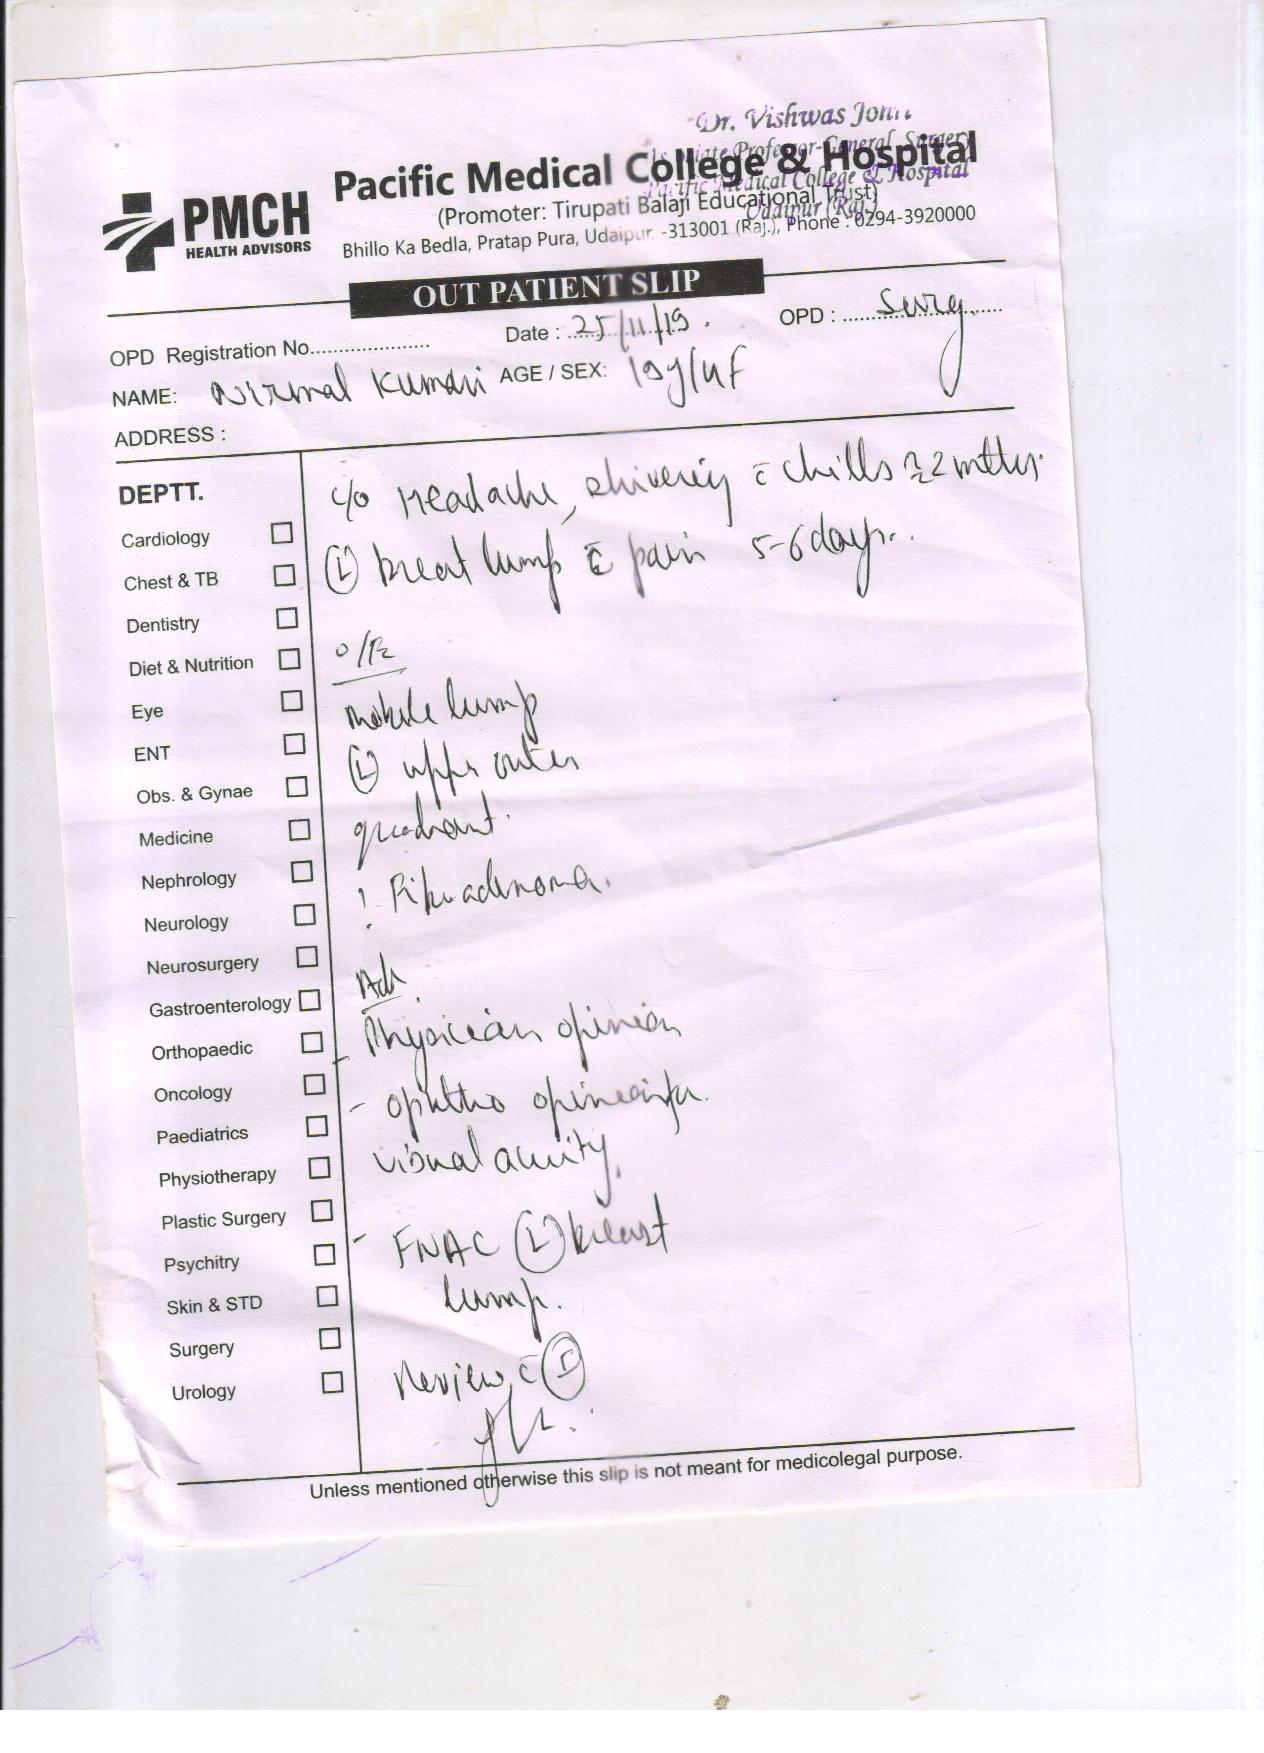 Dr. Vishwas Johri
Associate Professor-General Surgery
Pacific Medical College & Hospital
Udaipur (Raj.)
PMCH
HEALTH ADVISORS
Pacific Medical College & Hospital
(Promoter: Tirupati Balaji Educational Trust)
Bhillo Ka Bedla, Pratap Pura, Udaipur -313001 (Raj.), Phone : 0294-3920000
OUT PATIENT SLIP
OPD Registration No.................... Date : 25/11/19. OPD : Surg
NAME: Nirmal Kumari AGE / SEX: 19y/uF
ADDRESS :
DEPTT.
Cardiology
Chest & TB
Dentistry
Diet & Nutrition
Eye
ENT
Obs. & Gynae
Medicine
Nephrology
Neurology
Neurosurgery
Gastroenterology
Orthopaedic
Oncology
Paediatrics
Physiotherapy
Plastic Surgery
Psychitry
Skin & STD
Surgery
Urology
c/o Headache, shivering c̄ chills 2 mths.
(L) breat lump c̄ pain 5-6 days..
O/E
mobile lump
(L) upper outer
quadrant.
? Fibroadenoma.
Adv
- Physician opinion
- optho opinion for
visual acuity.
- FNAC (L) breast
lump.
Review c̄ (r)
Unless mentioned otherwise this slip is not meant for medicolegal purpose.